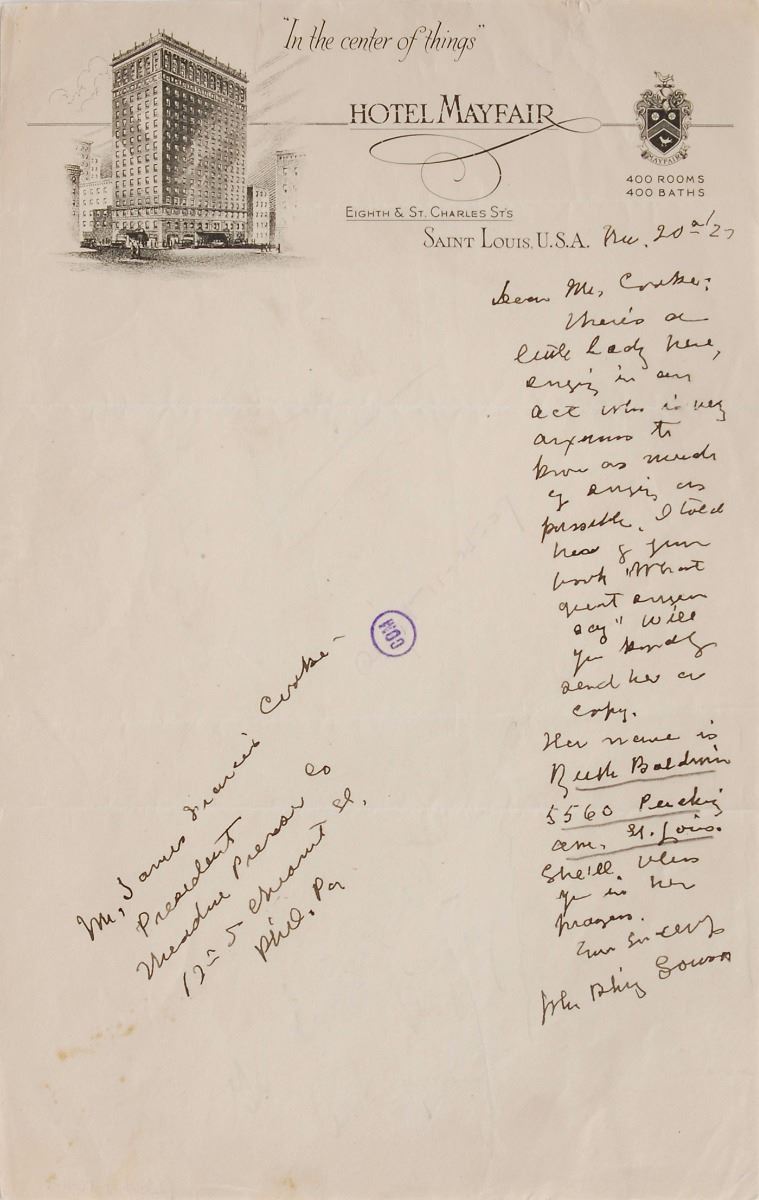 "In the center of things"
HOTEL MAYFAIR
MAYFAIR
400 ROOMS
400 BATHS
EIGHTH & ST. CHARLES ST'S
SAINT LOUIS, U.S.A. Nov. 20th/27
Dear Mr. Cooke:
There's a
little lady here,
singing in an
act who is very
anxious to
know as much
of singing as
possible. I told
her of your
book "What
great singers
say" Will
you kindly
send her a
copy.
Her name is
Ruth Baldwin
5560 Pershing
ave, St. Louis.
She'll bless
you in her
prayers.
Sincerely
John Philip Sousa
COM
Mr, James Francis Cooke -
President
Theodore Presser Co
Chesnut St,
Phil. Pa